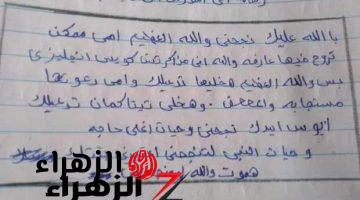 بالله عليك نجحني والله العظيم امي ممكن
تروح فيها عارفه والله اني مذاكرتش كويس انجليزي
بس والله العظيم هخليها تدعيلك وامي دعوتها
مستجابه وهخلي تيتا كمان تدعيلك
ابوس ايدك نجحني وحيات اغلي حاجه
و حيات النبي لتنجحني
هموت والله
الزهراء
الزهراء